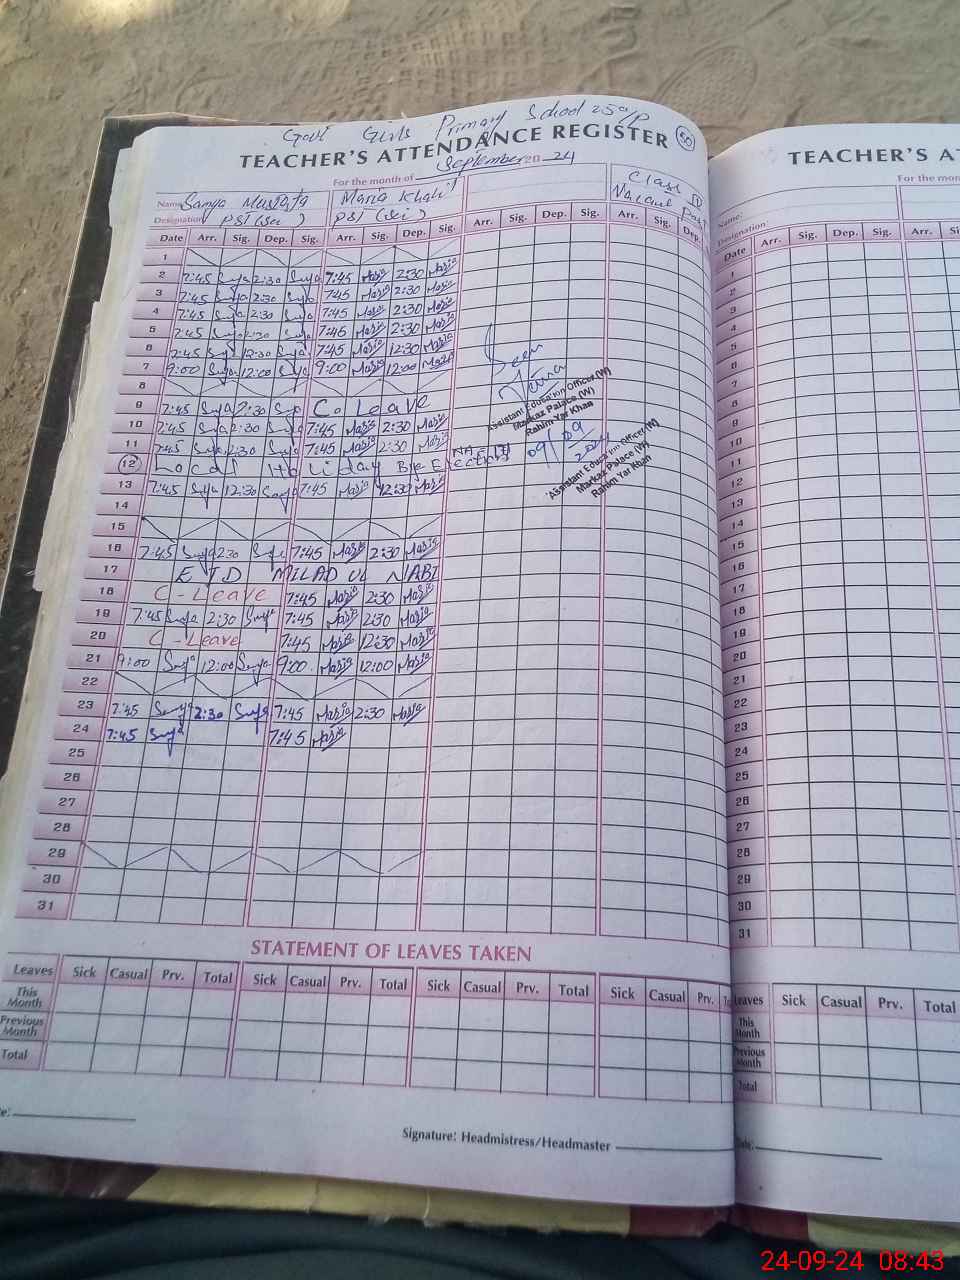 Govt Girls Primary School 259/P
TEACHER'S ATTENDANCE REGISTER 50
For the month of September 20 24
Name Sanya Mustafa Maria Khalil Class IV
Designation PST (Sci) PST (Sci) Post
Date Arr. Sig. Dep. Sig. Arr. Sig. Dep. Sig. Arr. Sig. Dep. Sig. Arr. Sig. Dep.
1
2 7:45 2:30 7:45 Maria 2:30 Maria
3 7:45 2:30 7:45 Maria 2:30 Maria
4 7:45 2:30 7:45 Maria 2:30 Maria
5 7:45 2:30 7:45 Maria 2:30 Maria
6 7:45 12:30 7:45 Maria 12:30 Maria
7 9:00 12:00 9:00 Maria 12:00 Maria
8
9 7:45 2:30 C. Leave
10 7:45 2:30 7:45 Maria 2:30 Maria
11 7:45 2:30 7:45 Maria 2:30 Maria
12 Local Holiday Bye Election NA
13 7:45 12:30 7:45 Maria 12:30 Maria
14
15
16 7:45 2:30 7:45 Maria 2:30 Maria
17 EID MILAD UL NABI
18 C - Leave 7:45 Maria 2:30 Maria
19 7:45 2:30 7:45 Maria 2:30 Maria
20 C - Leave 7:45 Maria 12:30 Maria
21 9:00 12:00 9:00 Maria 12:00 Maria
22
23 7:45 2:30 7:45 Maria 2:30 Maria
24 7:45 7:45 Maria
25
26
27
28
29
30
31
Seen
Assistant Education Officer (W)
Markaz Palace (W)
Rahim Yar Khan
09/09
Assistant Education Officer (W)
Markaz Palace (W)
Rahim Yar Khan
STATEMENT OF LEAVES TAKEN
Leaves Sick Casual Prv. Total Sick Casual Prv. Total Sick Casual Prv. Total Sick Casual Prv.
This Month
Previous Month
Total
Signature: Headmistress/Headmaster
TEACHER'S
For the mon
Name:
Designation
Date Arr. Sig. Dep. Sig. Arr.
1
2
3
4
5
6
7
8
9
10
11
12
13
14
15
16
17
18
19
20
21
22
23
24
25
26
27
28
29
30
31
Leaves Sick Casual Prv. Total
This Month
Previous Month
Total
24-09-24 08:43